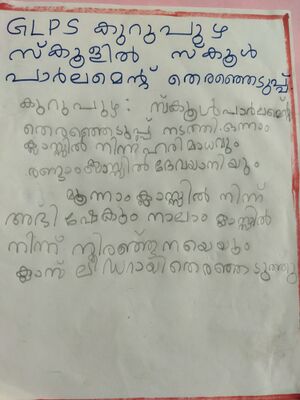 GLPS കുറുപുഴ
സ്കൂളിൽ സ്കൂൾ
പാർലമെന്റ് തെരഞ്ഞെടുപ്പ്
കുറുപുഴ: സ്കൂൾ പാർലമെന്റ്
തെരഞ്ഞെടുപ്പ് നടത്തി. ഒന്നാം
ക്ലാസ്സിൽ നിന്ന് ഹരിമാധവും
രണ്ടാം ക്ലാസ്സിൽ ദേവയാനിയും
മൂന്നാം ക്ലാസ്സിൽ നിന്ന്
അഭിഷേകും നാലാം ക്ലാസ്സിൽ
നിന്ന് യെയും
ക്ലാസ് ലീഡറായി തെരഞ്ഞെടുത്തു